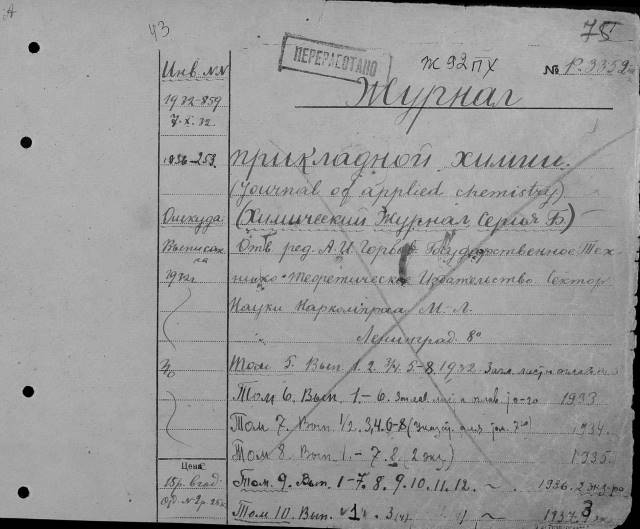 43
75
ПЕРЕРАБОТАНО
Ж 92 ПХ
№ Р.3359
Инв. №№
Журнал
1932-859
7.X.32
1936-253
прикладной химии.
(Journal of applied chemistry)
Откуда:
(Химический Журнал Серия Б)
Отв. ред. А.И. Горбов Государственное Тех-
нико-Теоретическое Издательство Сектор
1932
Науки Наркомпроса М. Л.
Ленинград 8°
Том 5. Вып. 1. 2. 3/4. 5-8. 1932
Том 6. Вып. 1.-6. 1933
Том 7. Вып. 1/2. 3,4. 6-8 1934.
Том 8. Вып. 1.-7. 8. (2 экз) 1935.
Цена
Том. 9. Вып. 1-7. 8. 9. 10. 11. 12. ~ 1936. 2 экз-ра
15р. в год.
Том 10. Вып. 1. 3 ~ 1937.